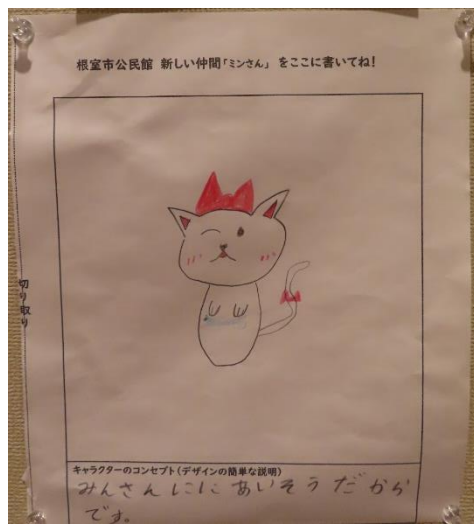 根室市公民館 新しい仲間「ミンさん」 をここに書いてね!
切り取り
キャラクターのコンセプト(デザインの簡単な説明)
みんさんににあいそうだから
です。